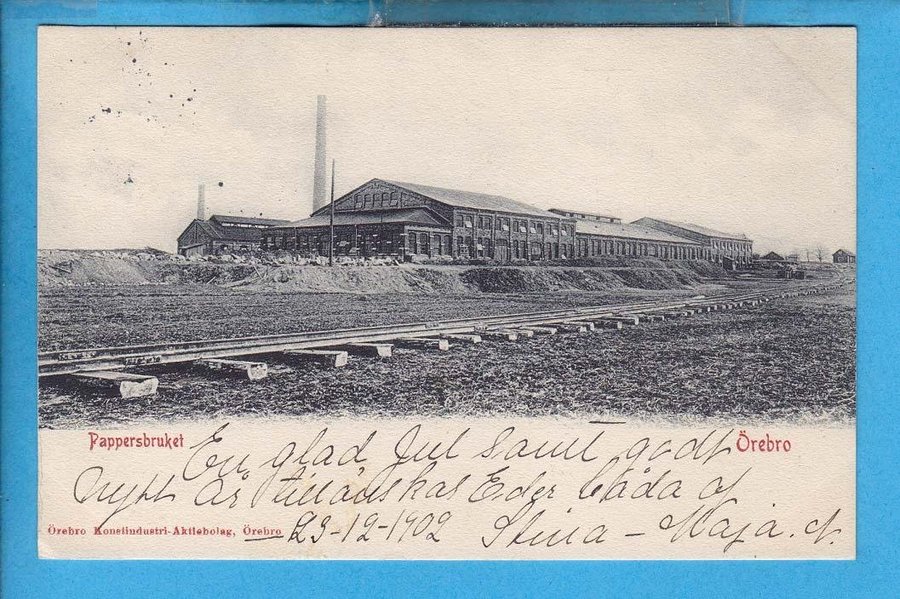 Pappersbruket
Örebro
En glad Jul samt godt
nytt år tillönskas Eder båda af
23-12-1902 Stina - Maja. N.
Örebro Konstindustri-Aktiebolag, Örebro